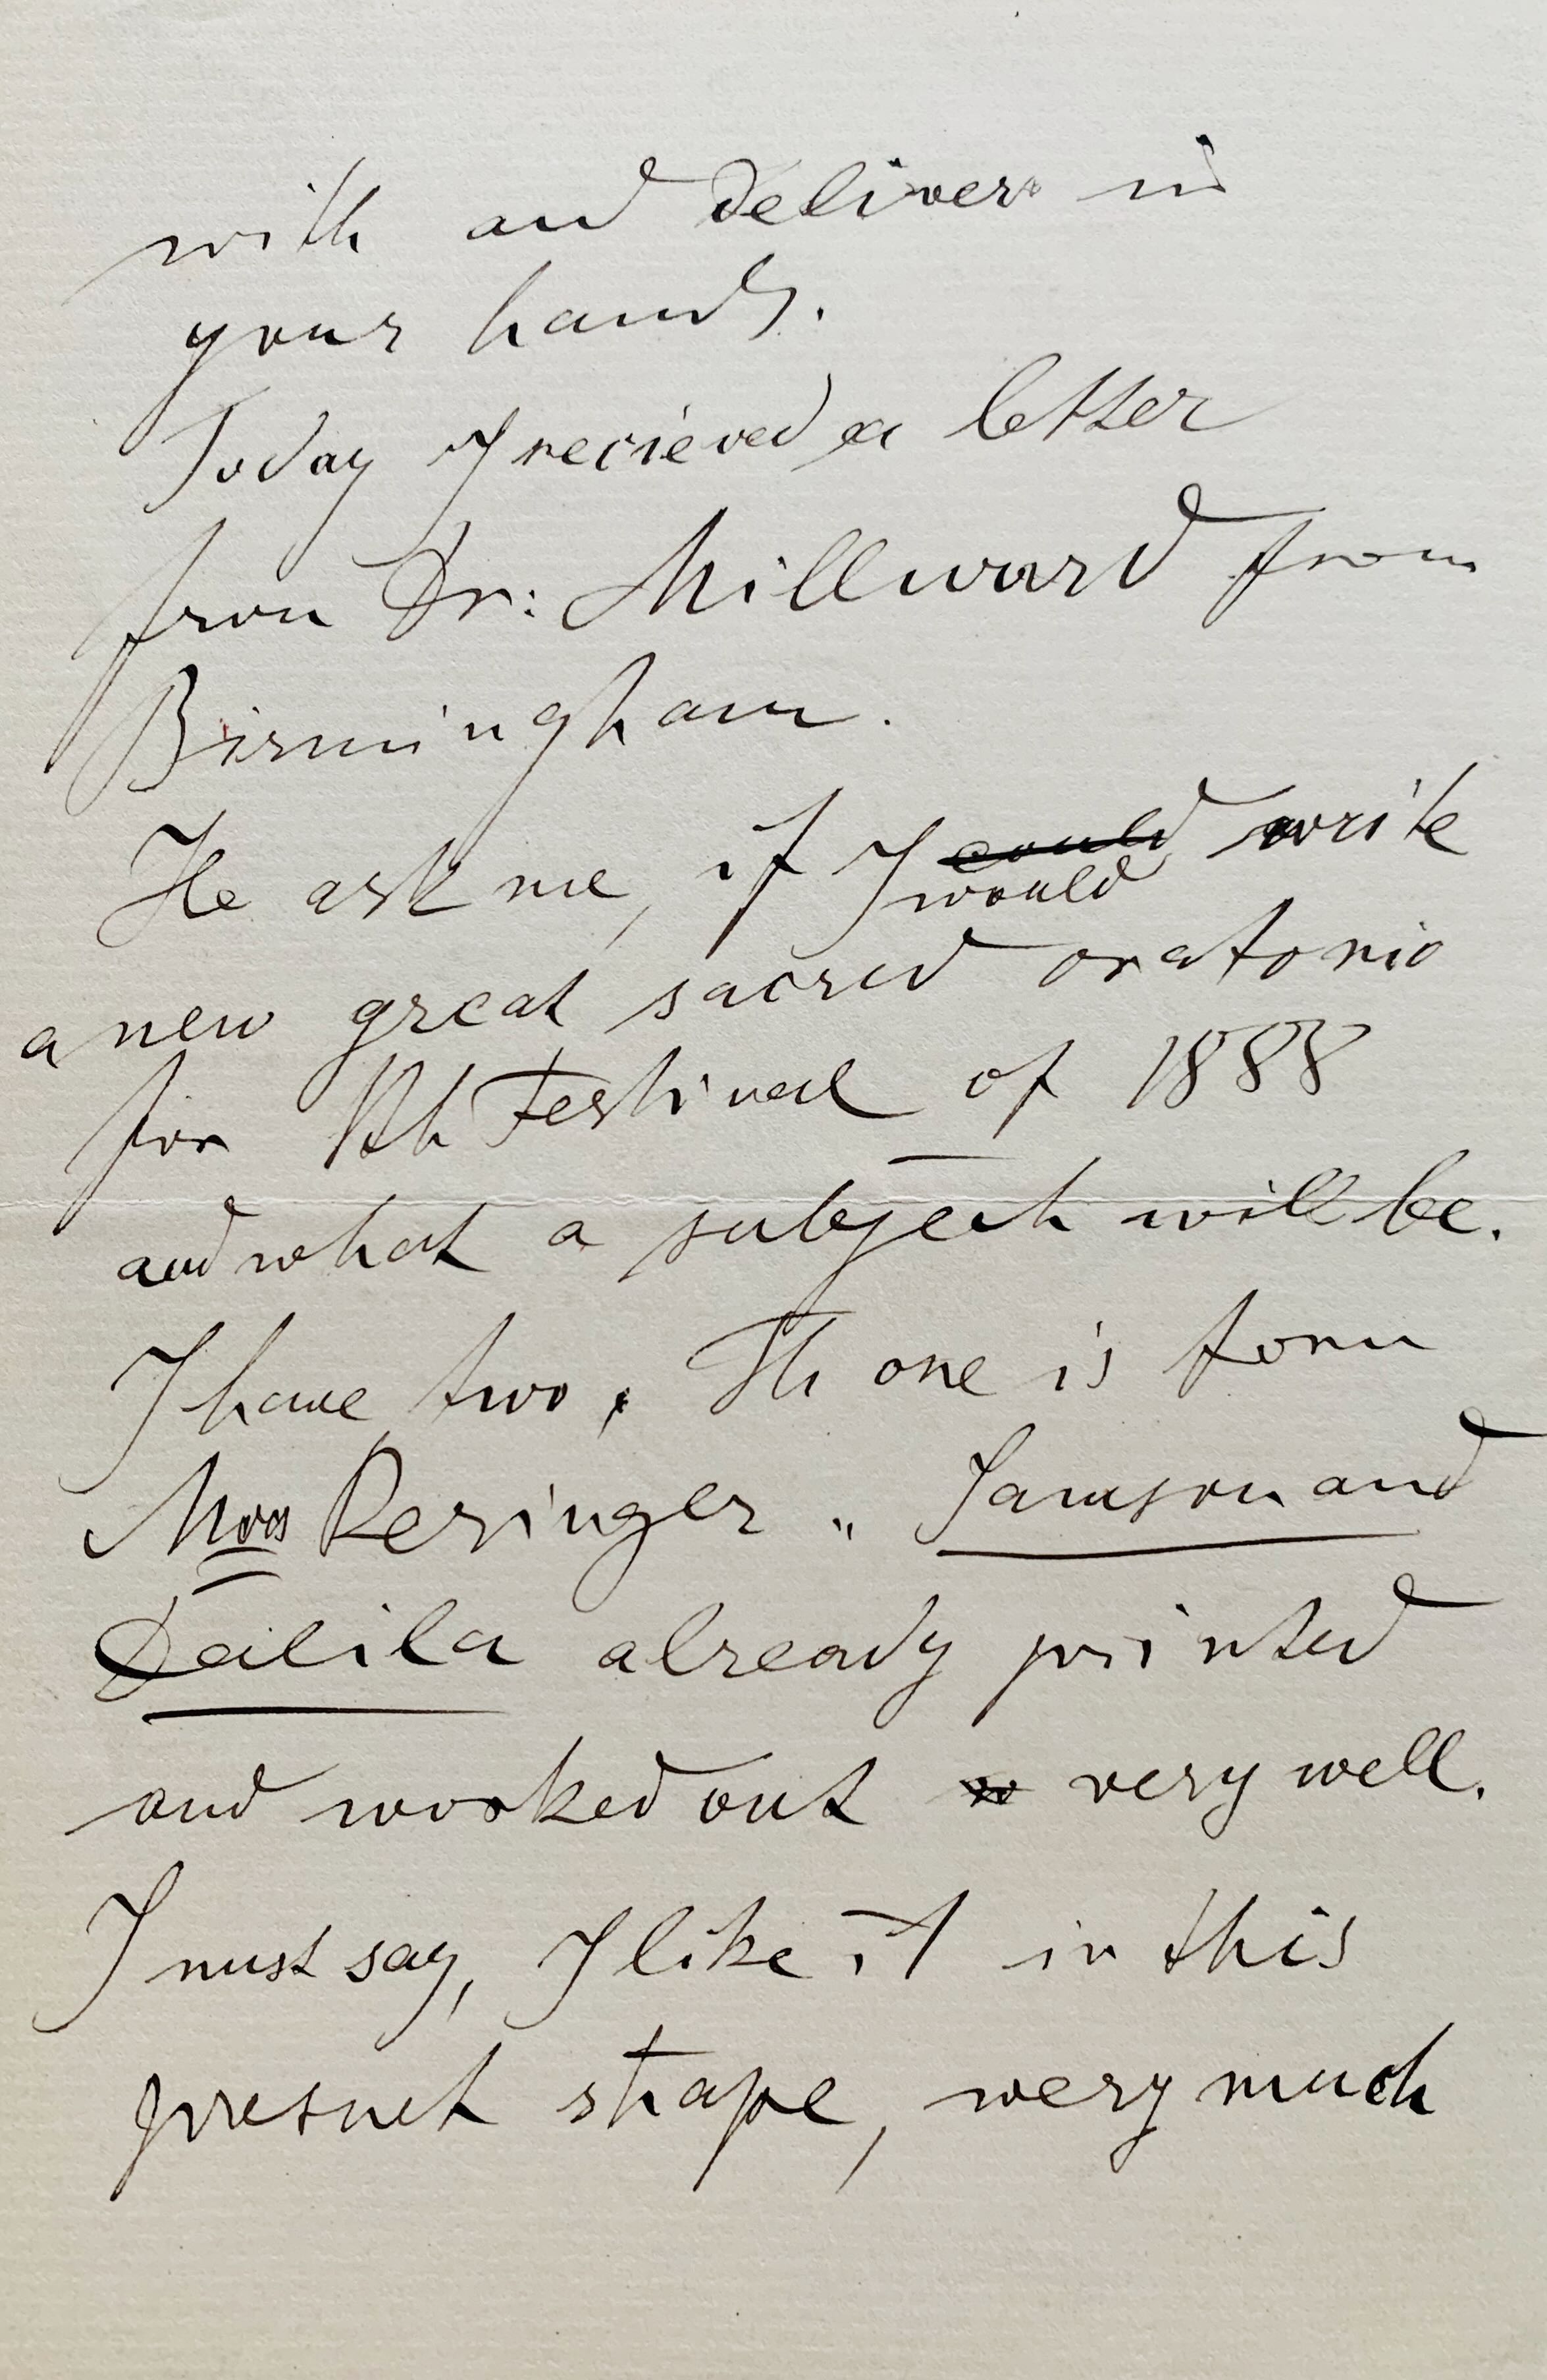 with and deliver in
your hands.
Today I recieved a letter
from Dr: Millward from
Birmingham.
He ask me, if I could write
would
a new great sacred oratorio
for th Festival of 1888
and what a subject will be.
I have two. Th one is form
Resinger „ Samson and
Dalila already printed
and worked out very well.
I must say, I like it in this
presnet shape, wery much